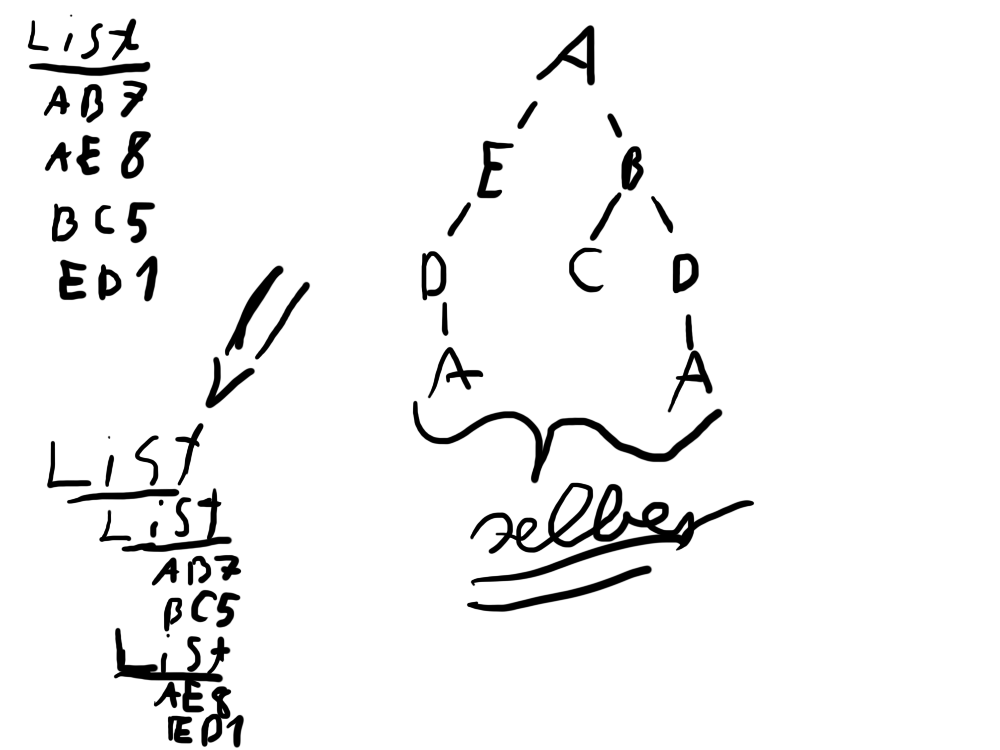 List
AB7
AE8
BC5
ED1
List
List
AB7
BC5
List
AE8
ED1
A
E B
D C D
A A
selber